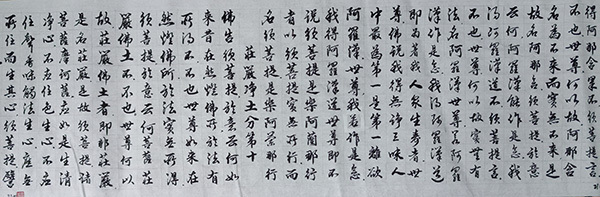 得阿那含果不須菩提言
不也世尊何以故阿那含
名为不来而實無不来是
故名阿那含須菩提於意
云何阿羅漢能作是念我
得阿羅漢道不須菩提言
不也世尊何以故實無有
法名阿羅漢世尊若阿羅
漢作是念我得阿羅漢道
即为著我人衆生壽者世
尊佛說我得無諍三昧人
中最为第一是第一離欲
阿羅漢世尊我若作是念
我得阿羅漢道世尊即不
說須菩提是樂阿蘭那行
者以須菩提實無所行而
名須菩提是樂阿蘭那行
莊嚴淨土分第十
佛告須菩提於意云何如
来昔在然燈佛所於法有
所得不不也世尊如来在
然燈佛所於法實無所得
須菩提於意云何菩薩莊
嚴佛土不不也世尊何以
故莊嚴佛土者即非莊嚴
是名莊嚴是故須菩提諸
菩薩摩訶薩應如是生清
淨心不應住色生心不應
住聲香味觸法生心應無
所住而生其心須菩提譬